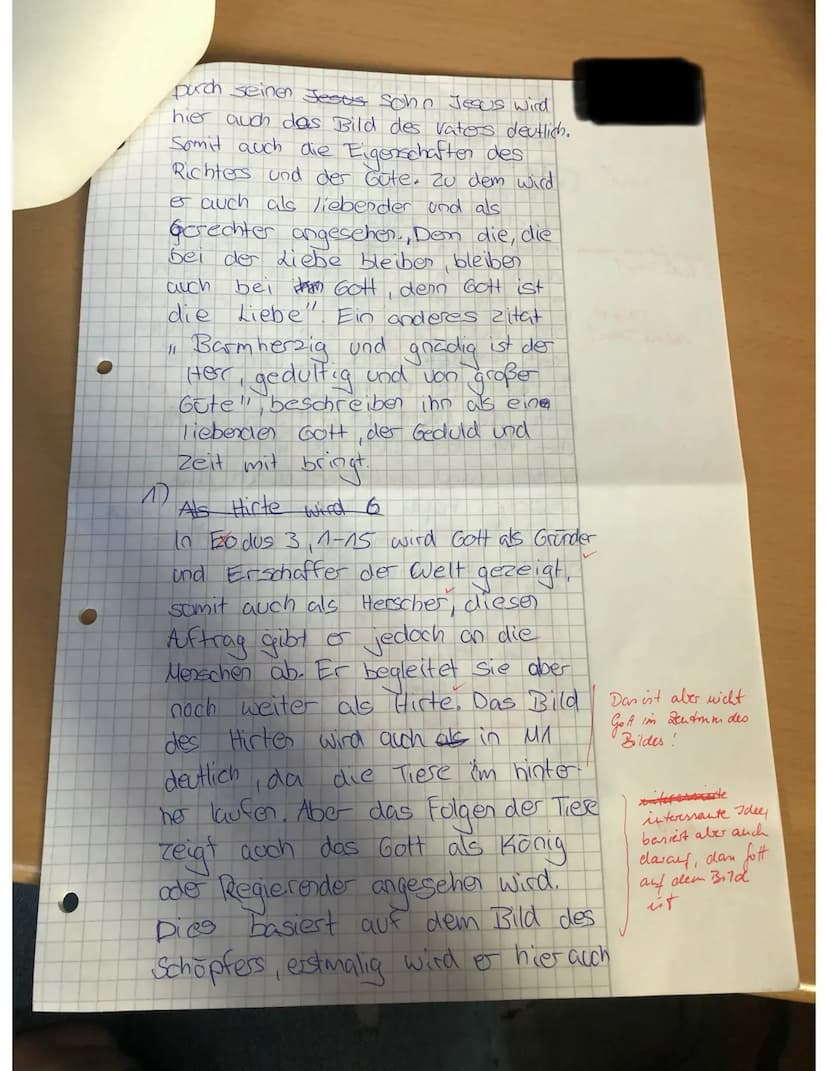 Durch seinen Jesus Sohn Jesus wird
hier auch das Bild des Vaters deutlich.
Somit auch die Eigenschaften des
Richters und der Güte. Zu dem wird
er auch als liebender und als
Gerechter angesehen. „Denn die, die
bei der Liebe bleiben, bleiben
auch bei Gott, denn Gott ist
die Liebe". Ein anderes Zitat
„Barmherzig und gnädig ist der
Herr, gedultig und von großer
Güte", beschreiben ihn als eine
liebenden Gott, der Geduld und
Zeit mit bringt.
1) Als Hirte wird G
In Exodus 3,1-15 wird Gott als Gründer
und Erschaffer der Welt gezeigt,
somit auch als Herscher, diesen
Auftrag gibt er jedoch an die
Menschen ab. Er begleitet Sie aber
noch weiter als Hirte. Das Bild
des Hirten wird auch als in M1
deutlich, da die Tiere im hinter-
her laufen. Aber das Folgen der Tiere
zeigt auch das Gott als König
oder Regierender angesehen wird.
Dies basiert auf dem Bild des
Schöpfers, erstmalig wird er hier auch
Das ist aber nicht
Gott im Zentrum des
Bildes!
interessante Idee,
basiert aber auch
darauf, dass Gott
auf dem Bild
ist